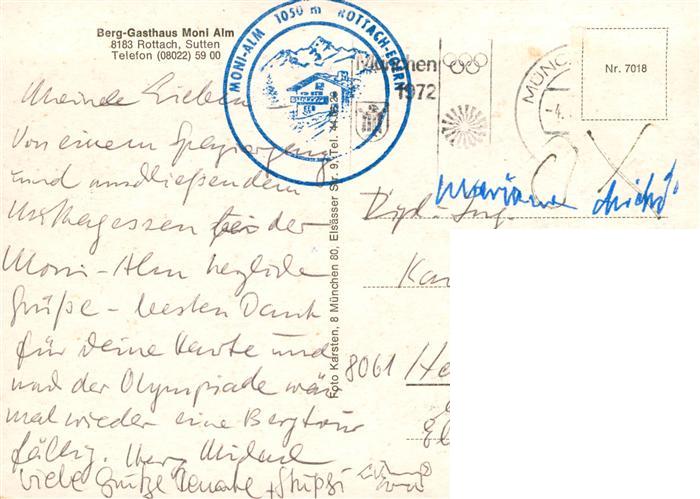 Berg-Gasthaus Moni Alm
8183 Rottach, Sutten
Telefon (08022) 59 00
MONI-ALM 1050 m ROTTACH-EGERN
München
1972
MÜNC
Nr. 7018
Meine Lieben
Von einem Spaziergang
und anschließendem
Mittagessen bei der
Moni-Alm herzliche
Grüße - besten Dank
für Deine Karte und
nach der Olympiade wär
mal wieder eine Bergtour
fällig. Herzl. Michael
viele Grüße Renate +
Foto Karsten, 8 München 80, Elsässer Str. 9, Tel.
Mariana
Dipl.-Ing.
Kar
8061 He